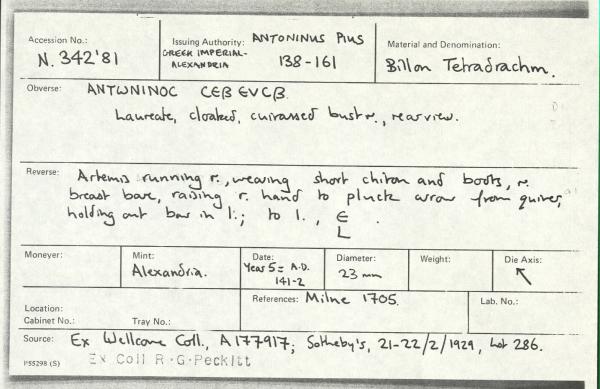 Accession No.: N. 342'81
Issuing Authority: ANTONINUS PIUS
GREEK IMPERIAL-
ALEXANDRIA 138-161
Material and Denomination:
Billon Tetradrachm.
Obverse: ANTωNINOC CEB EVCB
Laureate, cloaked, cuirassed bust r., rear view.
Reverse: Artemis running r., wearing short chiton and boots, r.
breast bare, raising r. hand to pluck arrow from quiver,
holding out bow in l.; to l., Є
L
Moneyer:
Mint: Alexandria.
Date: Year 5 = A.D.
141-2
Diameter: 23 mm
Weight:
Die Axis: ↖
Location:
Cabinet No.: Tray No.:
References: Milne 1705.
Lab. No.:
Source: Ex Wellcome Coll., A177917; Sotheby's, 21-22/2/1929, Lot 286.
Ex Coll R·G·Peckitt
P55298 (S)